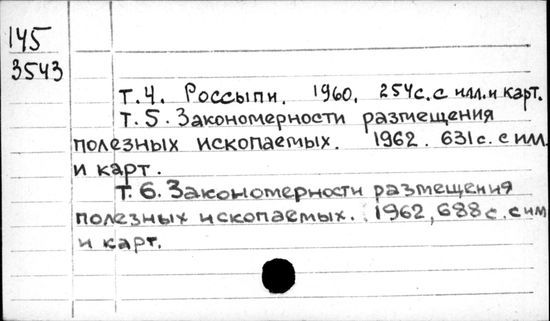 145
3543
т.4. Россыпи. 1960. 254с. с илл. и карт.
т.5. Закономерности размещения
полезных ископаемых. 1962. 631с. с илл.
и карт.
т.6. Закономерности размещения
полезных ископаемых. 1962, 688с. с илл
и карт.